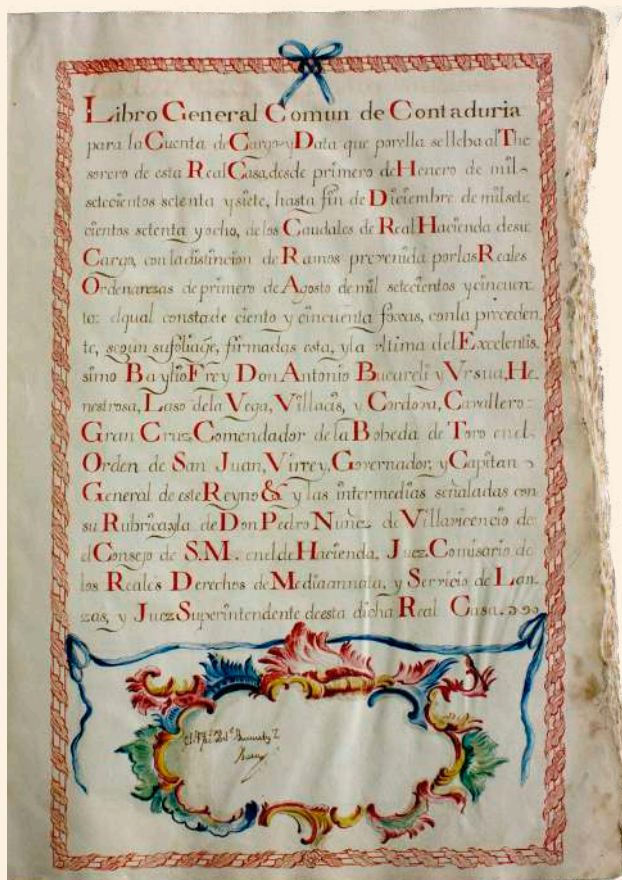 Libro General Comun de Contaduria
para la Cuenta de Cargo y Data que por ella se lleba al The
sorero de esta Real Casa, desde primero de Henero de mil
setecientos setenta y siete, hasta fin de Diciembre de mil sete
cientos setenta y ocho, de los Caudales de Real Hacienda de su
Cargo, con la distincion de Ramos prevenida por las Reales
Ordenanzas de primero de Agosto de mil setecientos y cincuen
ta: el qual consta de ciento y cincuenta foxas, con la preceden
te, segun su foliage, firmadas esta, y la ultima del Excelentis
simo Baylio Frey Don Antonio Bucareli y Vrsua, He
nestrosa, Laso de la Vega, Villacis, y Cordova, Cavallero
Gran Cruz, Comendador de la Bobeda de Toro en el
Orden de San Juan, Virrey, Governador, y Capitan
General de este Reyno & y las intermedias señaladas con
su Rubrica, y la de Don Pedro Nuñez de Villavicencio de
el Consejo de S.M. en el de Hacienda, Juez Comisario de
los Reales Derechos de Mediaannata, y Servicio de Lan
zas, y Juez Superintendente de esta dicha Real Casa.